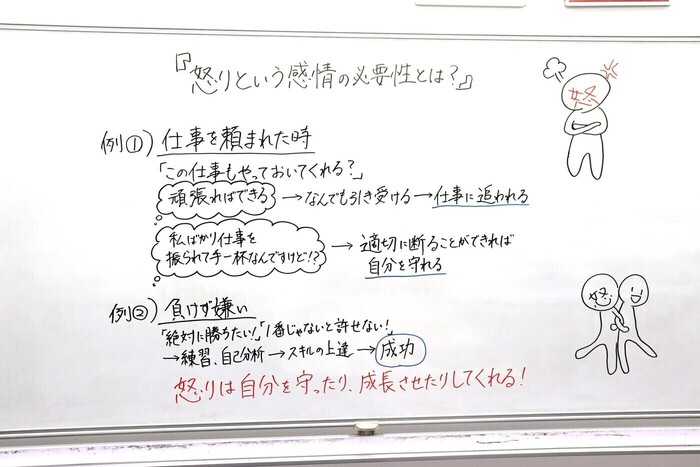 『怒りという感情の必要性とは?』
怒
例①) 仕事を頼まれた時
「この仕事もやっておいてくれる?」
頑張ればできる →なんでも引き受ける→仕事に追われる
私ばかり仕事を
振られて手一杯なんですけど!?
→ 適切に断ることができれば
自分を守れる
例②) 負けず嫌い
「絶対に勝ちたい!」「1番じゃないと許せない!」
→練習、自己分析→スキルの上達→成功
怒
怒りは自分を守ったり、成長させたりしてくれる!